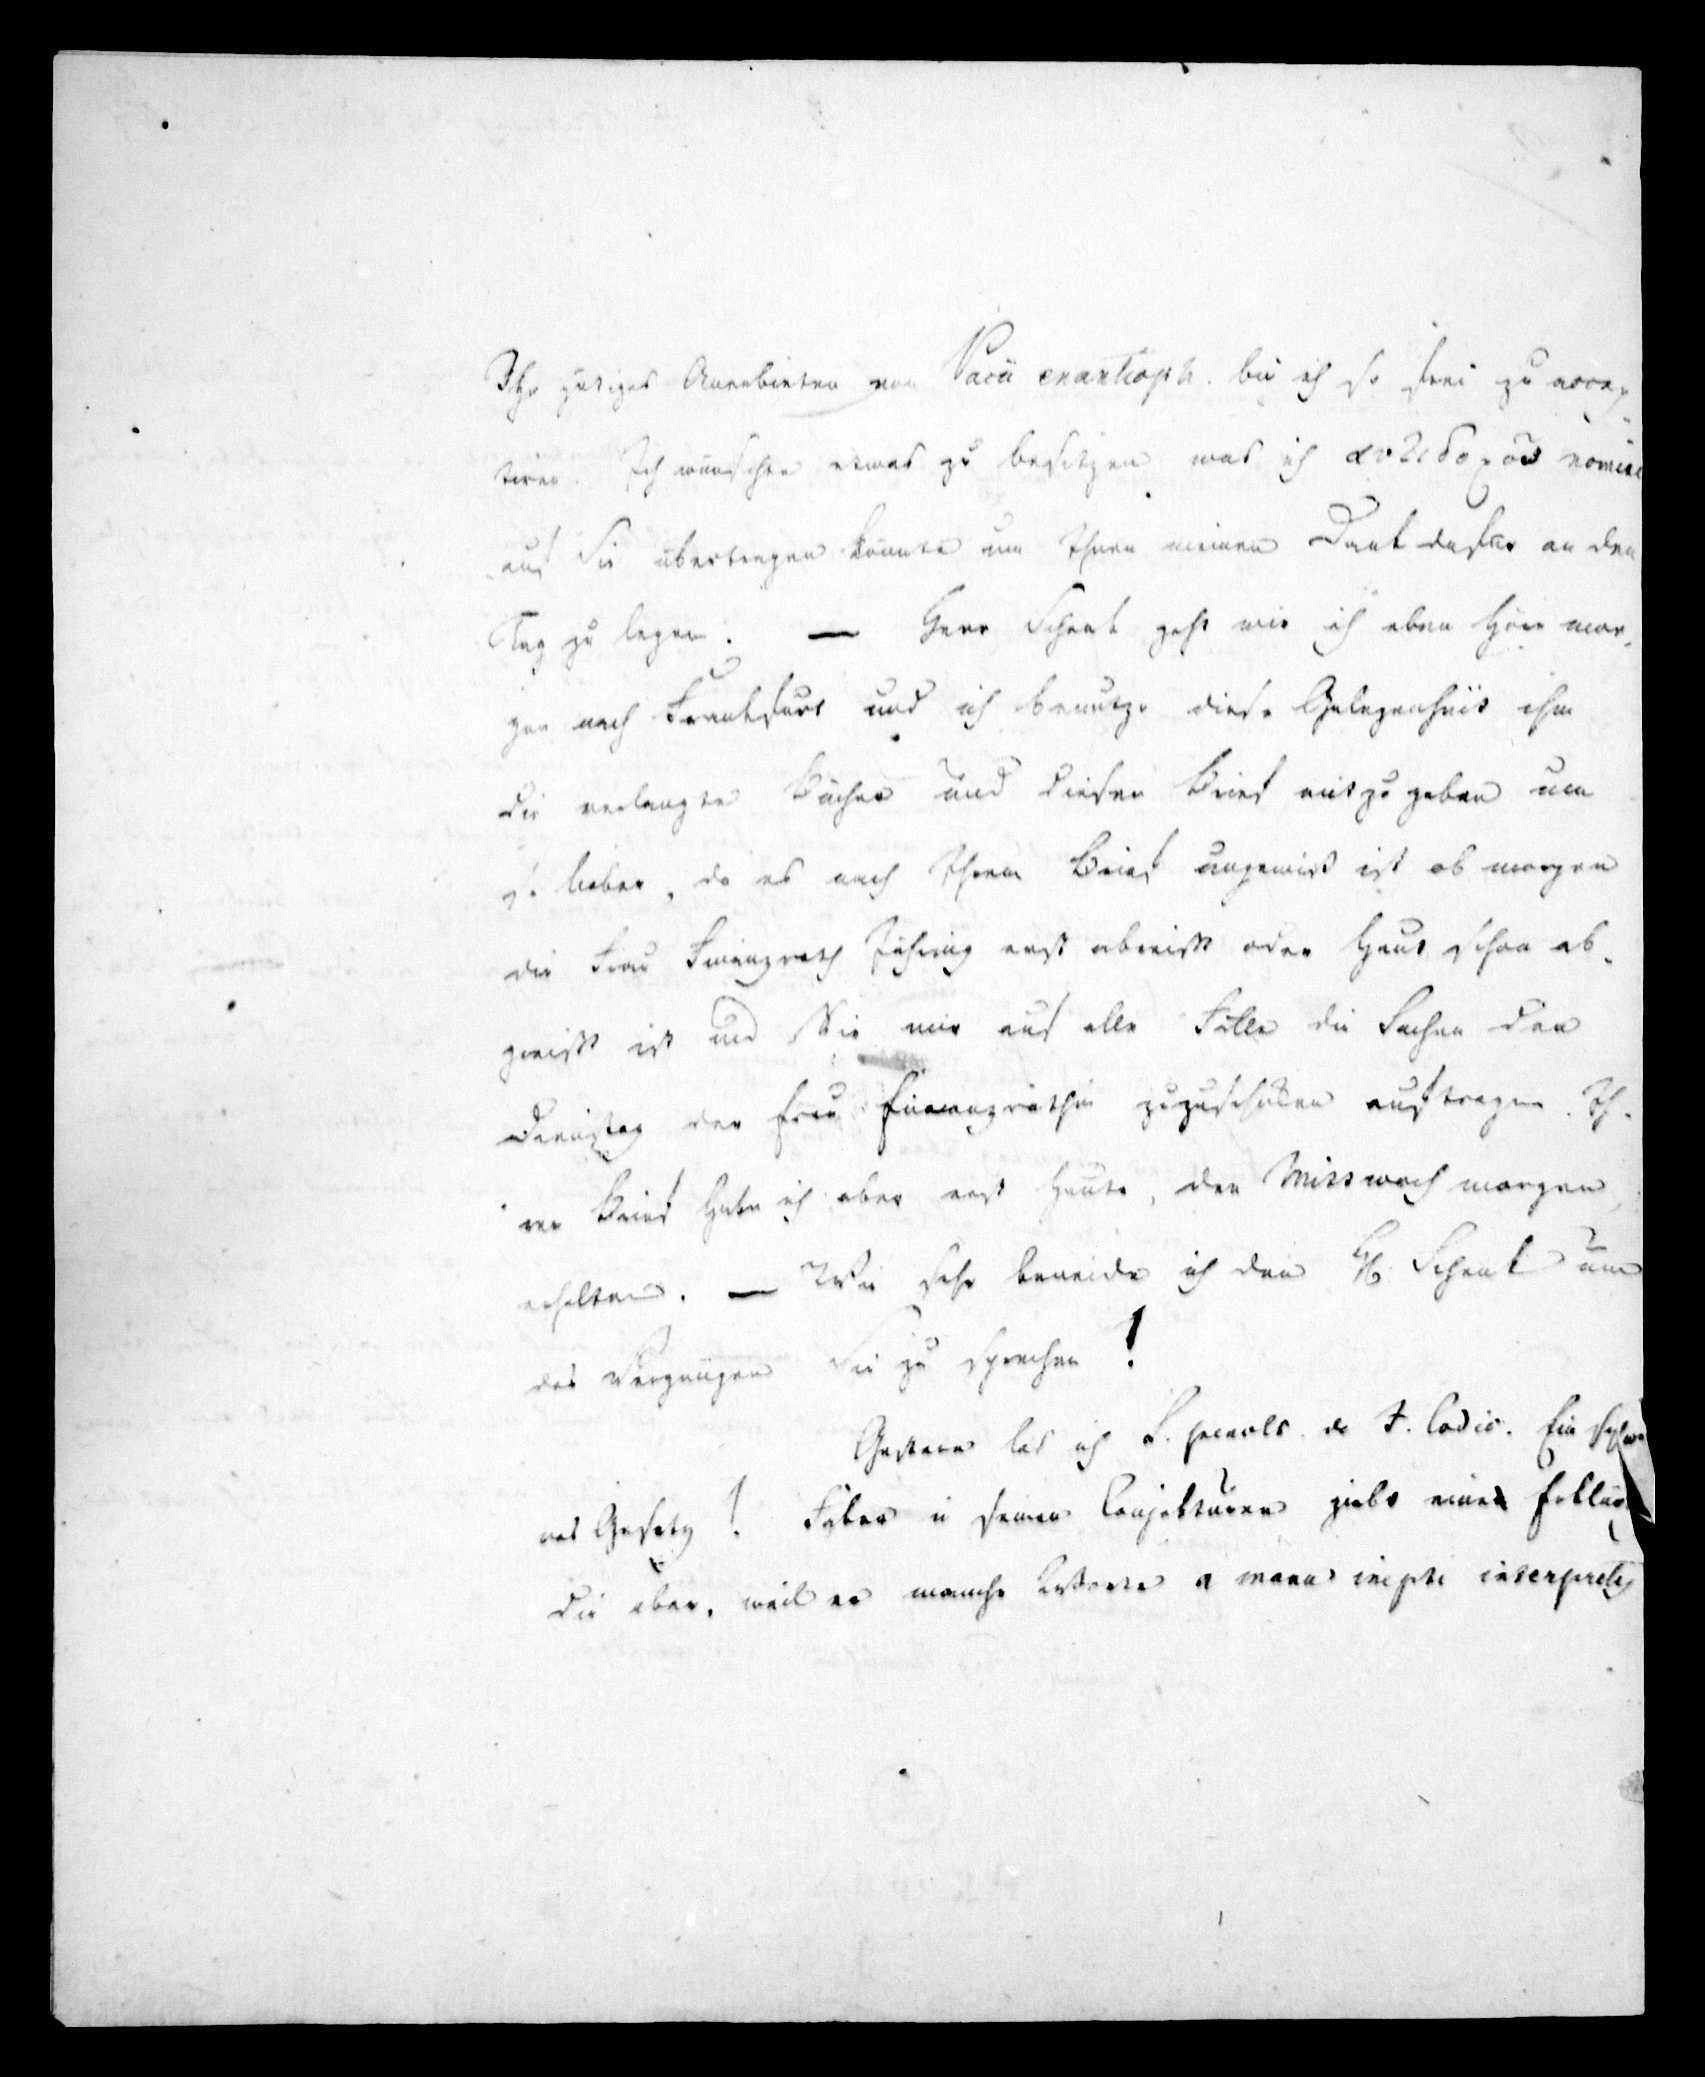 Ihr gütiges Anerbieten von Pacii enantioph. bin ich so frei zu accep-
tiren. Ich wünschte etwas zu besitzen was ich nomine
auf Sie übertragen könnte um Ihnen meinen Dank dafür an den
Tag zu legen. — Herr Schenk geht wie ich eben höre mor-
gen nach Frankfurt und ich benutze diese Gelegenheit ihm
die verlangte Bücher und diesen Brief mitzugeben um
so lieber, da es nach Ihrem Brief ungewiß ist ob morgen
die Frau Finanzrath erst abreißt oder heut schon ab-
gereißt ist und Sie mir auf alle Fälle die Sachen den
Dienstag der Frau Finanzräthin zuzuschicken auftragen. Ih-
ren Brief habe ich aber erst heute, den Mittwoch morgen,
erhalten. — Wie sehr beneide ich den H. Schenk um
das Vergnügen Sie zu sprechen!
Gestern las ich L. de F. Codic. Ein schö-
nes Gesetz! Faber in seinen Conjekturen giebt eine Erklär
die aber, weil er manche Worte inepte